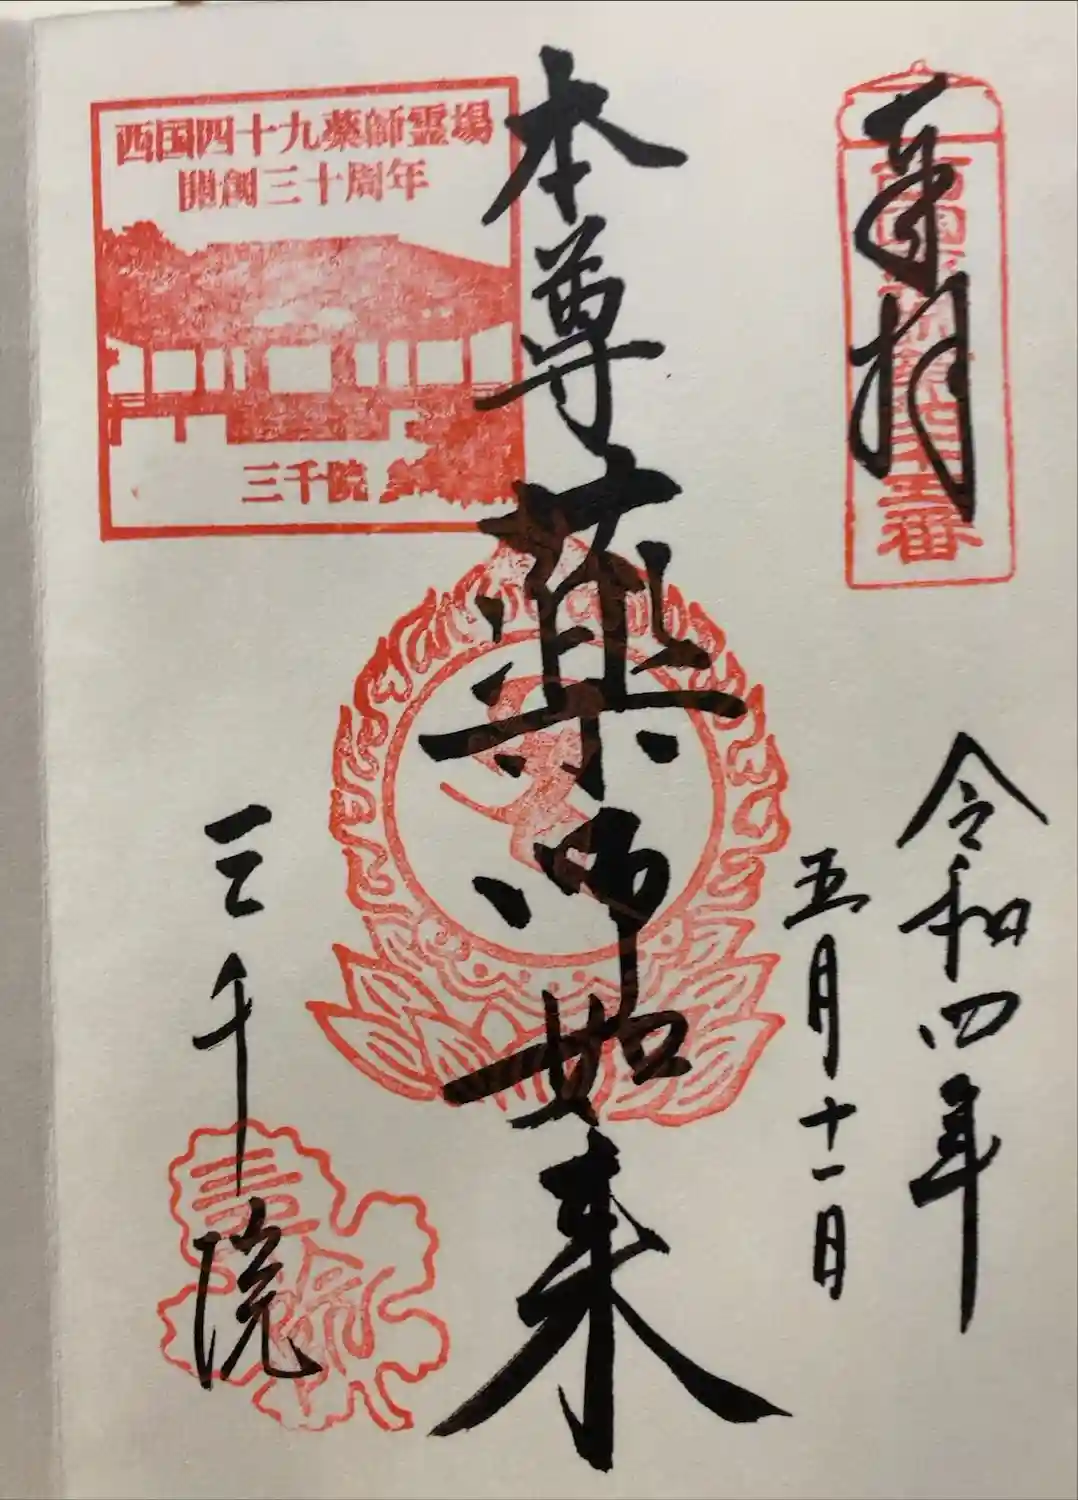 奉拝
西国薬師第四十五番
令和四年
五月十一日
本尊薬師如来
西国四十九薬師霊場
開創三十周年
三千院
三千院